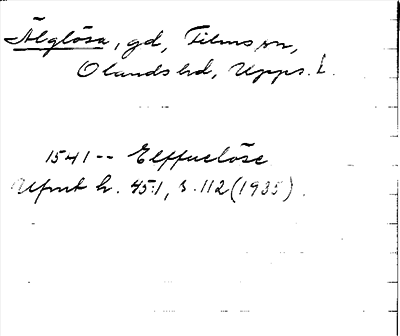 Älglösa, gd, Films sn,
Olands hd, Upps. l.
1541 -- Elffueløse
Ufmt h. 45:1, s. 112 (1935).